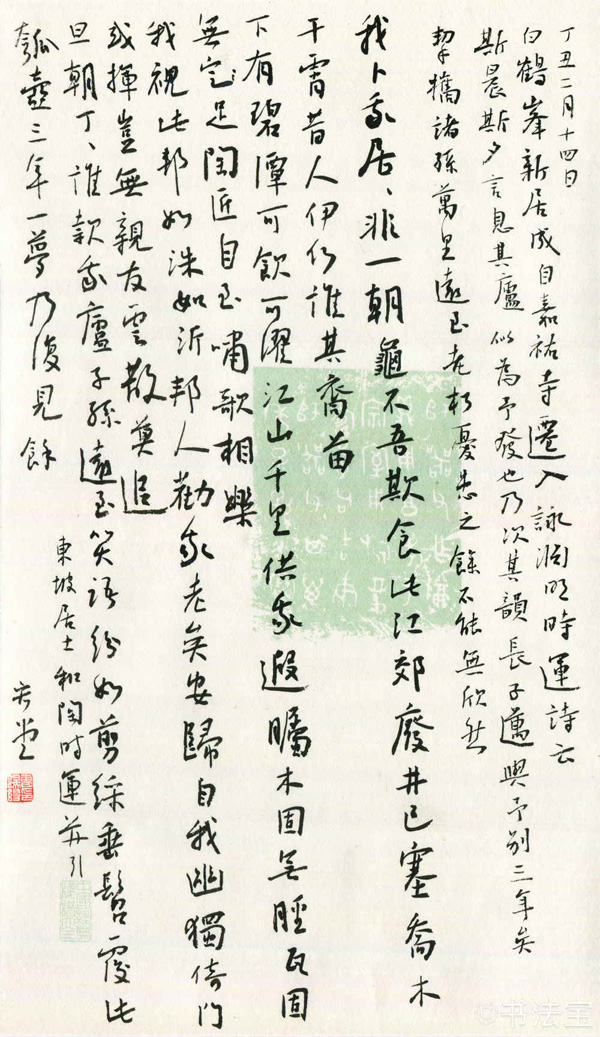 丁丑二月十四日
白鶴峯新居成自嘉祐寺遷入詠淵明時運詩云
斯晨斯夕言息其廬似為予發也乃次其韻長子邁與予别三年矣
挈攜諸孫萬里遠至老朽憂患之餘不能無欣然
我卜我居、非一朝龜不吾欺食此江郊廢井已塞喬木
干霄昔人伊何誰其裔苗
下有碧潭可飲可濯江山千里供我遐矚木固無脛瓦固
無定足陶匠自至嘯歌相樂
我視此邦如洙如沂邦人勸我老矣安歸自我幽獨倚門
或揮豈無親友雲散莫追
旦朝丁、誰款我廬子孫遠至笑語紛如剪綵垂髫覆此
瓠壺三年一夢乃復見餘
東坡居士和陶時運并引
书法宝